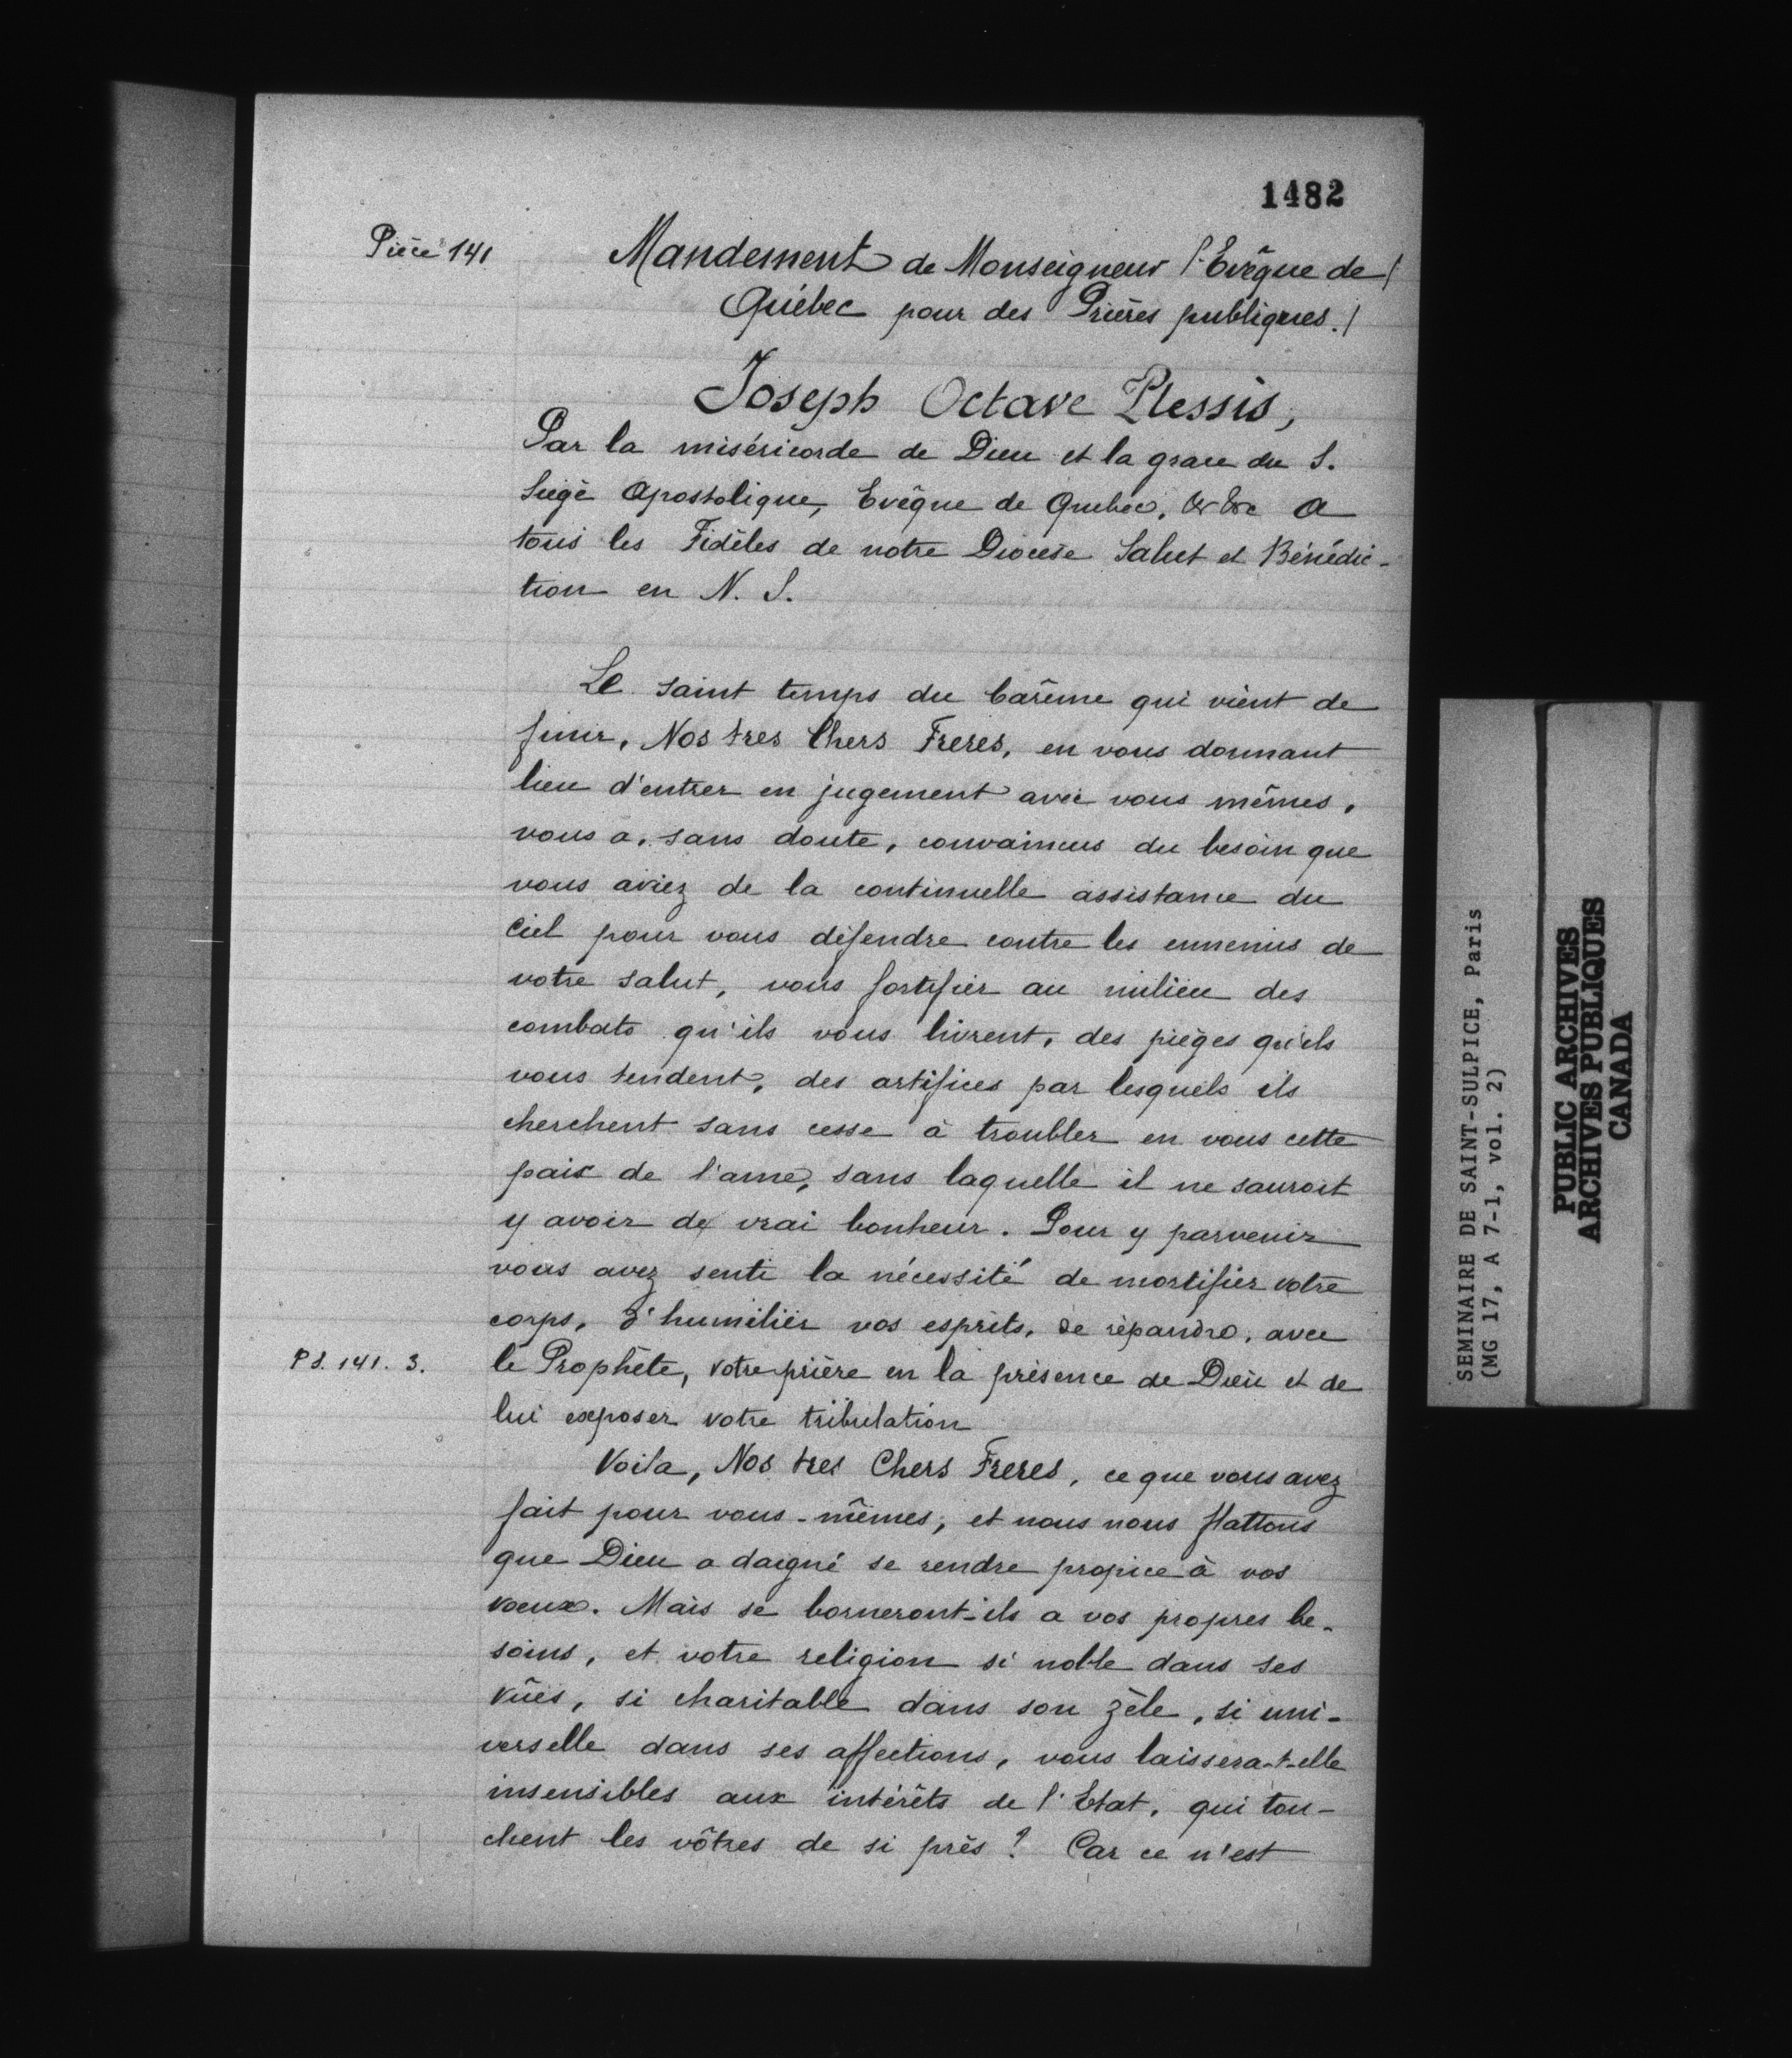 1482
Pièce 141
Mandement de Monseigneur l'Evêque de
Québec pour des Prières publiques.
Joseph Octave Plessis,
Par la miséricorde de Dieu et la grace du S.
Siège Apostolique, Evêque de Quebec, &c &c a
tous les Fidèles de notre Diocèse Salut et Bénédic-
tion en N. S.
Le saint temps du Carême qui vient de
finir, Nos tres Chers Freres, en vous donnant
lieu d'entrer en jugement avec vous mêmes,
vous a, sans doute, convaincus du besoin que
vous aviez de la continuelle assistance du
Ciel pour vous défendre contre les ennemis de
votre salut, vous fortifier au milieu des
combats qu'ils vous livrent, des pièges qu'ils
vous tendent, des artifices par lesquels ils
cherchent sans cesse à troubler en vous cette
paix de l'ame, sans laquelle il ne sauroit
y avoir de vrai bonheur. Pour y parvenir
vous avez senti la nécessité de mortifier votre
corps, d'humilier vos esprits, de répandre, avec
Ps. 141. 3.
le Prophète, votre prière en la présence de Dieu et de
lui exposer votre tribulation
Voila, Nos tres Chers Freres, ce que vous avez
fait pour vous-mêmes, et nous nous flattons
que Dieu a daigné se rendre propice à vos
voeux. Mais se borneront-ils a vos propres be-
soins, et votre religion si noble dans ses
vûes, si charitable dans son zèle, si uni-
verselle dans ses affections, vous laissera-t-elle
insensibles aux intérêts de l'Etat, qui tou-
chent les vôtres de si près? Car ce n'est
SEMINAIRE DE SAINT-SULPICE, Paris
(MG 17, A 7-1, vol. 2)
PUBLIC ARCHIVES
ARCHIVES PUBLIQUES
CANADA